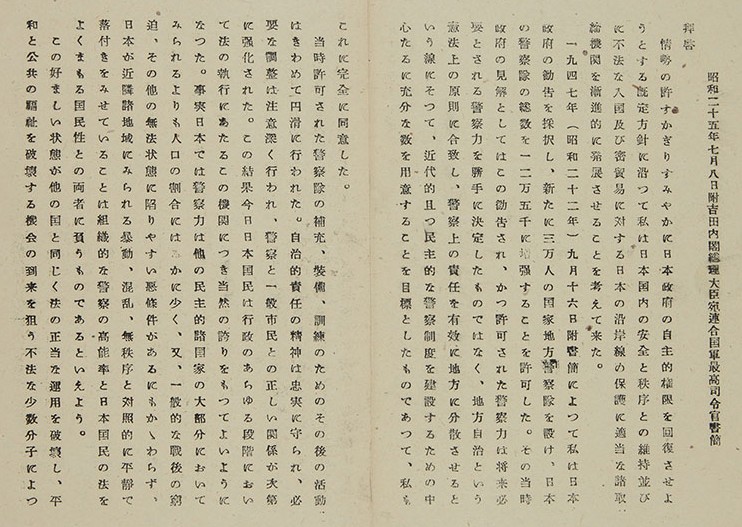 昭和二十五年七月八日附吉田内閣総理大臣宛連合国軍最高司令官書簡
拝啓
情勢の許すかぎりすみやかに日本政府の自主的権限を回復させよ
うとする既定方針に沿つて私は日本国内の安全と秩序との維持並び
に不法な入国及び密貿易に対する日本の沿岸線の保護に適当な諸取
締機関を漸進的に発展させることを考えて来た。
一九四七年（昭和二十二年）九月十六日附書簡によつて私は日本
政府の勧告を採択し、新たに三万人の国家地方警察隊を設け、日本
の警察隊の総数を一二万五千に増强することを許可した。その当時
政府の見解としてはこの勧告され、かつ許可された警察力は将来必
要とされる警察力を勝手に決定したものではなく、地方自治という
憲法上の原則に合致し、警察上の責任を有効に地方に分散させると
いう線にそつて、近代的且つ民主的な警察制度を建設するための中
心たるに充分な数を用意することを目標としたものであつて、私も
これに完全に同意した。
当時許可された警察隊の補充、装備、訓練のためのその後の活動
はきわめて円滑に行われた。自治的責任の精神は忠実に守られ、必
要な調整は注意深く行われ、警察と一般市民との正しい関係が次第
に强化された。この結果今日日本国民は行政のあらゆる段階におい
て法の執行にあたるこの機関につき当然の誇りをもつてよいように
なつた。事実日本では警察力は他の民主的諸国家の大部分において
みられるよりも人口の割合には かに少く、又、一般的な戦後の窮
迫、その他の無法状態に陥りやすい悪条件があるにもかゝわらず、
日本が近隣諸地域にみられる暴動、混乱、無秩序と対照的に平静で
落付きをみせていることは組織的な警察の高能率と日本国民の法を
よくまもる国民性との両者に負うものであるといえよう。
この好ましい状態が他の国と同じく法の正当な運用を破壊し、平
和と公共の福祉を破壊する機会の到来を狙う不法な少数分子によつ